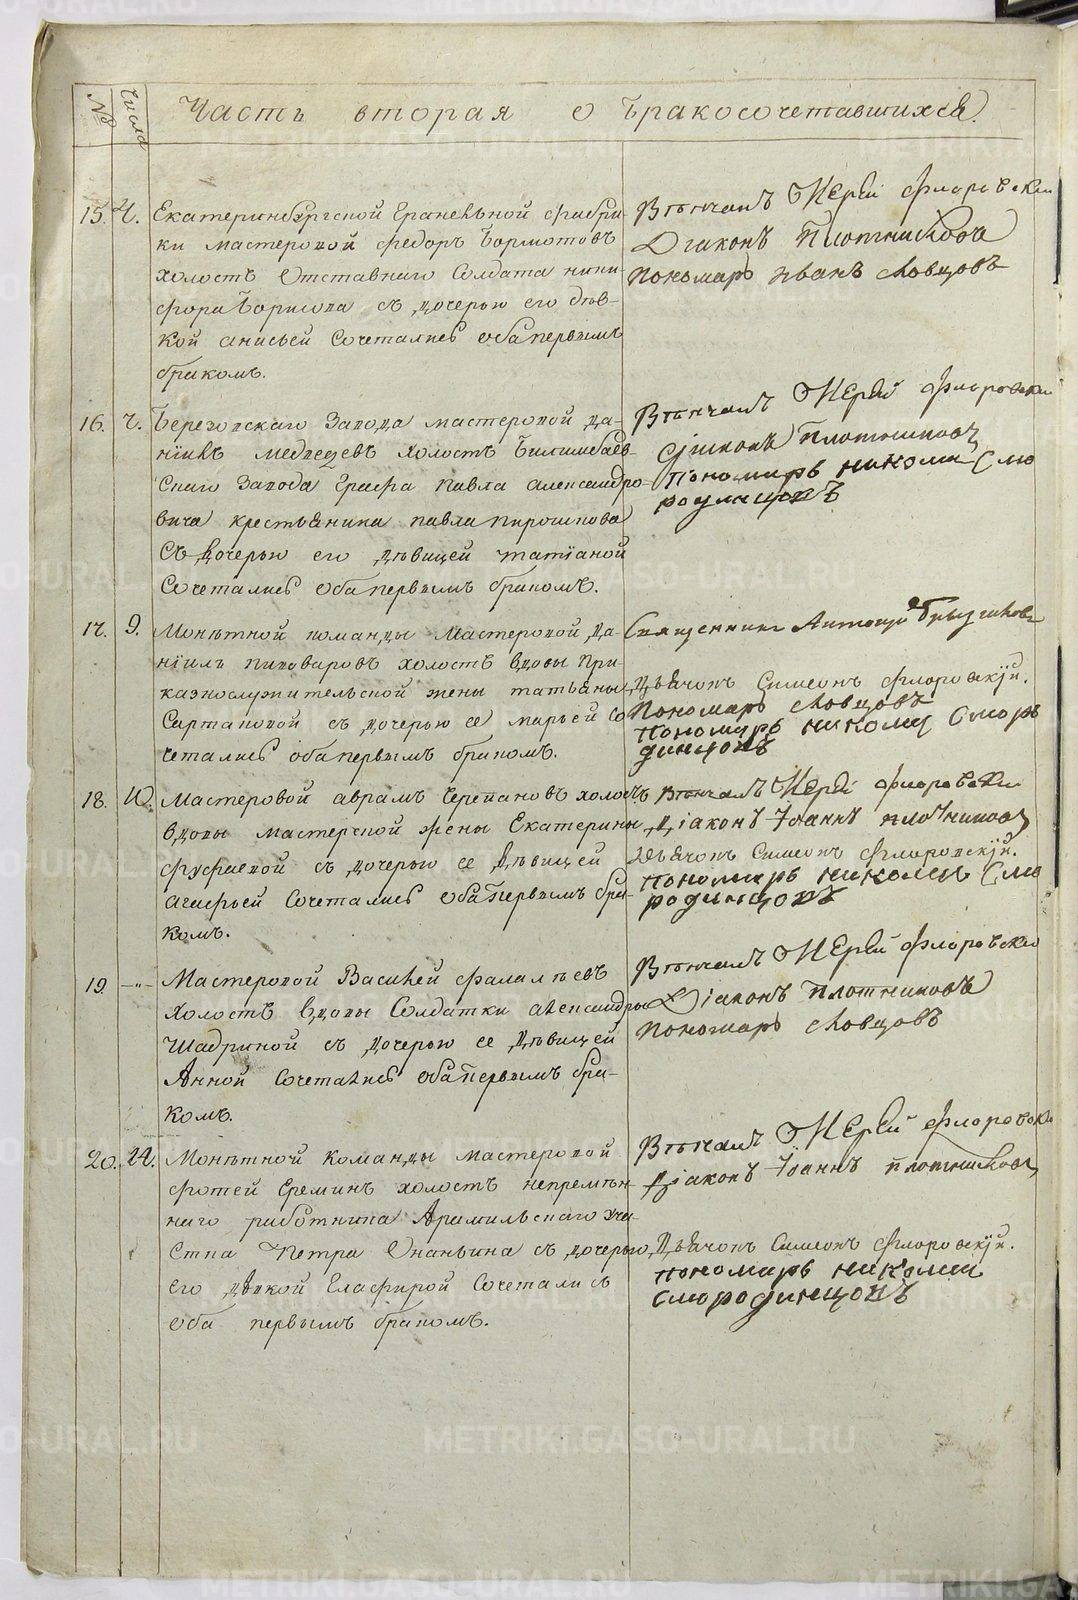 № Числа Часть вторая о Бракосочетавшихся.
15. Екатеринбургской Граненьной фабри-
ки мастеровой Федоръ Бормотовъ
холостъ отставнаго Солдата Ники-
фора Борисова съ дочерью его дѣв-
кой Анисьей Сочетались оба первымъ
бракомъ.
Вѣнчалъ Иерей Флоровски
Диаконъ Плотниковъ
Пономарь Иванъ Ловцовъ
16. Березовскаго Завода мастеровой Да-
ніилъ Медведевъ холостъ Билимбаев-
скаго Завода Графа Павла Александро-
вича крестьянина Павла Пирошкова
съ дочерью его дѣвицей Татіаной
Сочетались оба первымъ бракомъ.
Вѣнчалъ Иерей Флоровски
Діаконъ Плотниковъ
Пономарь Николай Смо
родинцовъ
17. 9. Монѣтной команды Мастеровой Да-
ніилъ Пивоваровъ холостъ вдовы при-
казнослужительской жены Татьяны
Сартаковой съ дочерью ее Марьей со
четались оба первымъ бракомъ.
Священникъ Антоній
Дьячокъ Симеонъ Флоровскій.
Пономарь Ловцовъ
Пономарь Николай Сморо
динцовъ
18. 10. Мастеровой Аврамъ Черепановъ холостъ
вдовы мастерской жены Екатерины
Фуфаевой съ дочерью ее дѣвицей
Агафьей Сочетались оба первымъ бра-
комъ.
Вѣнчалъ Иерей Флоровски
Діаконъ Іоаннъ Плотниковъ
Дьячокъ Симеонъ Флоровскій.
Пономарь Николай Смо
родинцовъ
19. -"- Мастеровой Василей Фалалѣевъ
холостъ вдовы Солдатки Александры
Шадриной съ дочерью ее дѣвицей
Анной Сочетались оба первымъ бра-
комъ.
Вѣнчалъ Иерей Флоровски
Діаконъ Плотниковъ
Пономарь Ловцовъ
20. 24. Монѣтной команды мастеровой
Фотей Ереминъ холостъ непремѣн-
наго работника Арамильскаго уча-
стка Петра Ананьина съ дочерью
его дѣвкой Глафирой Сочетались
оба первымъ бракомъ.
Вѣнчалъ Иерей Флоровски
Діаконъ Іоаннъ Плотниковъ
Дьячокъ Симеонъ Флоровскій.
Пономарь Николай
Смородинцовъ
METRIKI.GASO-URAL.RU